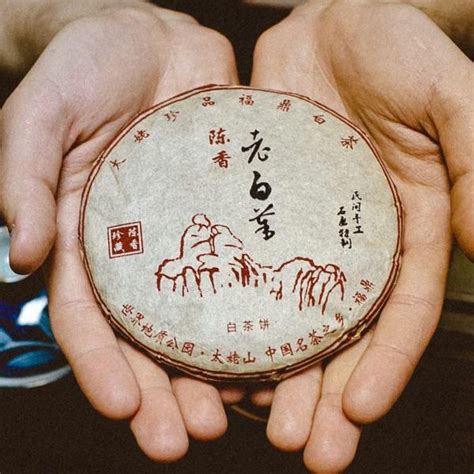 太姥珍品福鼎白茶
陈香
老白茶
民间手工
特制
陈香
珍藏
白茶饼
世界地质公园·太姥山 中国名茶之乡·福鼎